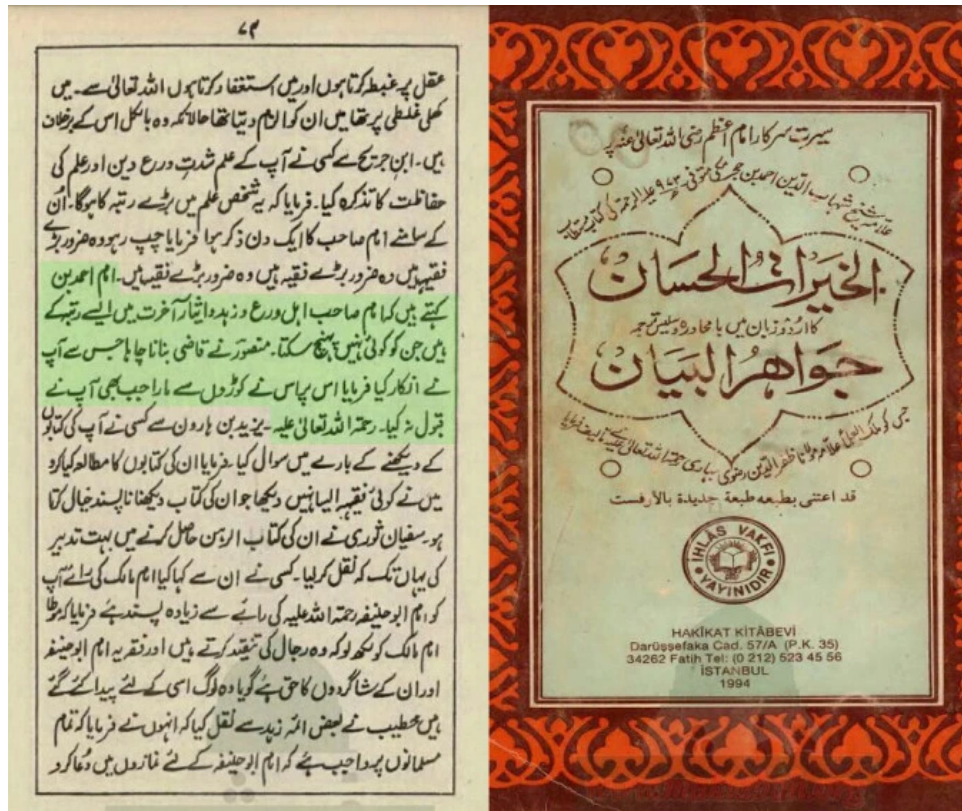 ۷۴
عقل پر غبطہ کرتا ہوں اور میں استغفار کرتا ہوں اللہ تعالیٰ سے۔ میں
کھلی غلطی پر تھا میں ان کو الزام دیتا تھا حالانکہ وہ بالکل اس کے برخلاف
ہیں۔ ابن جریج سے کسی نے آپ کے علم شدتِ ورع دین اور علم کی
حفاظت کا تذکرہ کیا۔ فرمایا کہ یہ شخص علم میں بڑے رتبہ کا ہوگا۔ اُن
کے سامنے امام صاحب کا ایک دن ذکر ہوا فرمایا چپ رہو وہ ضرور بڑے
فقیہ ہیں وہ ضرور بڑے فقیہ ہیں وہ ضرور بڑے فقیہ ہیں۔ امام احمد بن
کہتے ہیں کہ امام صاحب اہل ورع و زہد و ایثار آخرت میں ایسے رتبہ کے
ہیں جن کو کوئی نہیں پہنچ سکتا۔ منصور نے قاضی بنانا چاہا جس سے آپ
نے انکار کیا فرمایا اس پر اس نے کوڑوں سے مارا جب بھی آپ نے
قبول نہ کیا۔ رحمۃ اللہ تعالیٰ علیہ۔ یزید بن ہارون سے کسی نے آپ کی کتابوں
کے دیکھنے کے بارے میں سوال کیا۔ فرمایا ان کی کتابوں کا مطالعہ کیا کرو
میں نے کوئی فقیہ ایسا نہیں دیکھا جو ان کی کتاب دیکھنا ناپسند خیال کرتا
ہو۔ سفیان ثوری نے ان کی کتاب الرہن حاصل کرنے میں بہت تدبیر
کی یہاں تک کہ نقل کرلیا۔ کسی نے ان سے کہا کیا امام مالک کی رائے آپ
کو امام ابوحنیفہ رحمۃ اللہ علیہ کی رائے سے زیادہ پسند ہے فرمایا کہ مؤطا
امام مالک کو لکھ لو کہ وہ رجال کی تنقید کرتے ہیں اور فقہ یہ امام ابوحنیفہ
اور ان کے شاگردوں کا حق ہے گویا وہ لوگ اسی کے لئے پیدا کئے گئے
ہیں خطیب نے بعض ائمہ زہد سے نقل کیا کہ انہوں نے فرمایا کہ تمام
مسلمانوں پر واجب ہے کہ امام ابوحنیفہ کے لئے نمازوں میں دُعا کرو
سیرت سرکار امام اعظم رضی اللہ تعالیٰ عنہ پر
شہاب الدین احمد بن حجر مکی متوفی ۹۷۳ علیہ الرحمۃ کی کتاب
الخیرات الحسان
کا اردو زبان میں بامحاورہ و سلیس ترجمہ
جواهر البیان
جس کو ملک العلماء علامہ مولانا ظفر الدین رضوی بہاری رحمۃ اللہ تعالیٰ علیہ نے تالیف فرمایا
قد اعتنی بطبعه طبعة جديدة بالأوفست
İHLÂS VAKFI
YAYINIDIR
HAKÎKAT KİTÂBEVİ
Darüşşefaka Cad. 57/A (P.K. 35)
34262 Fatih Tel: (0 212) 523 45 56
İSTANBUL
1994